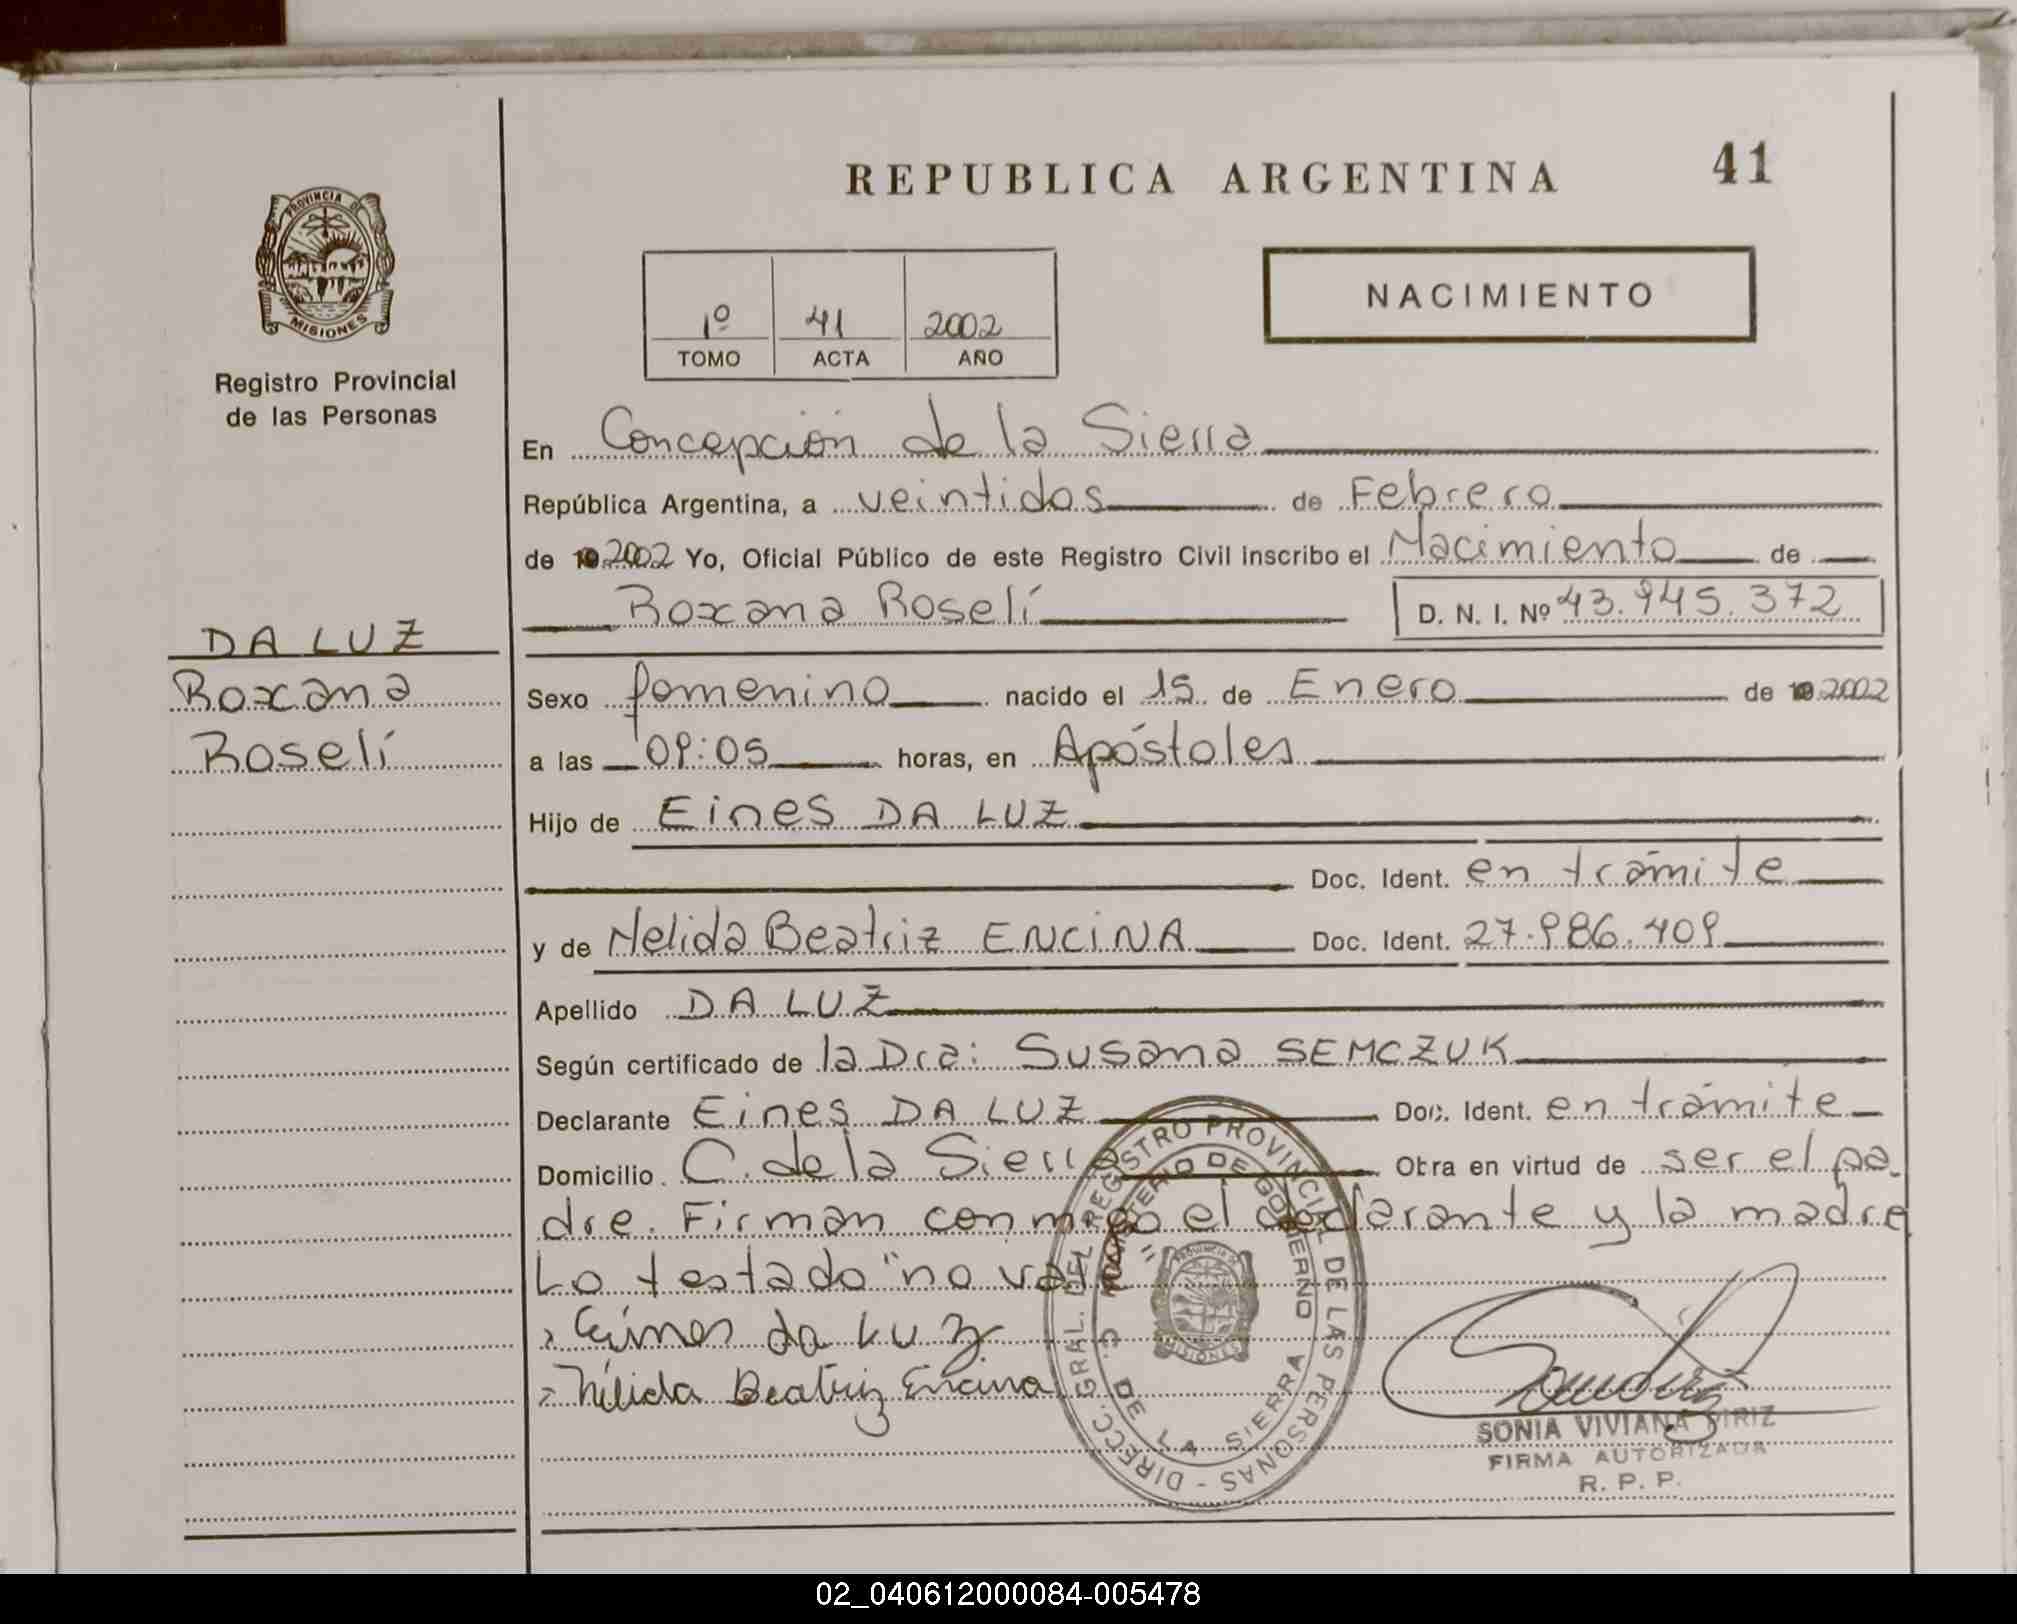 REPUBLICA ARGENTINA 41
PROVINCIA DE MISIONES
Registro Provincial
de las Personas
1º 41 2002
TOMO ACTA AÑO
NACIMIENTO
En Concepción de la Sierra
República Argentina, a veintidos de Febrero
de 2002 Yo, Oficial Público de este Registro Civil inscribo el Nacimiento de
Roxana Roselí D. N. I. Nº 43.945.372
DA LUZ
Roxana
Roselí
Sexo femenino nacido el 15 de Enero de 2002
a las 09:05 horas, en Apóstoles
Hijo de Eines DA LUZ
Doc. Ident. en trámite
y de Nelida Beatriz ENCINA Doc. Ident. 27.986.409
Apellido DA LUZ
Según certificado de la Dra: Susana SEMCZUK
Declarante Eines DA LUZ Doc. Ident. en trámite
Domicilio C. de la Sierra Obra en virtud de ser el pa-
dre. Firman conmigo el declarante y la madre
Lo testado "no vale"
Eines da Luz
Nélida Beatriz Encina
DIRECC. GRAL. DEL REGISTRO PROVINCIAL DE LAS PERSONAS -
MINISTERIO DE GOBIERNO
C. DE LA SIERRA
PROVINCIA DE MISIONES
SONIA VIVIANA PIRIZ
FIRMA AUTORIZADA
R. P. P.
02_040612000084-005478